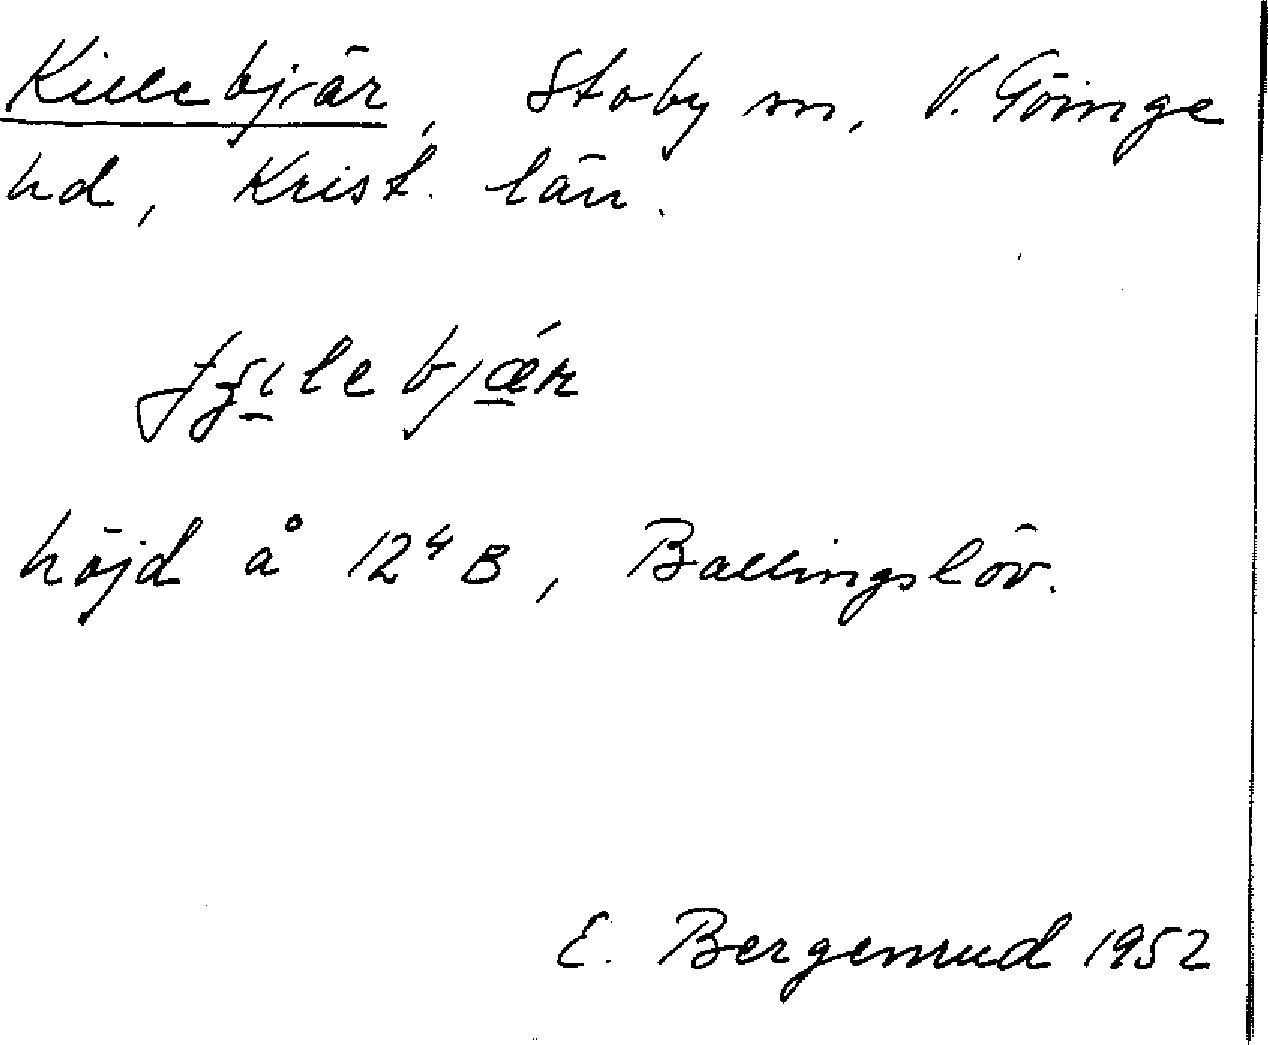 Killebjär, Stoby sn, V. Göinge
hd, Krist. län.
höjd å 12⁴ B, Ballingslöv.
E. Bergenrud 1952